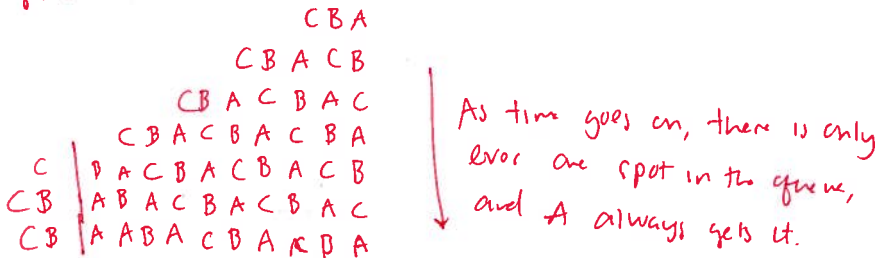 C B A
C B A C B
C B A C B A C
C B A C B A C B A
C | B A C B A C B A C B
C B | A B A C B A C B A C
C B | A A B A C B A C B A
As time goes on, there is only
ever one spot in the queue,
and A always gets it.